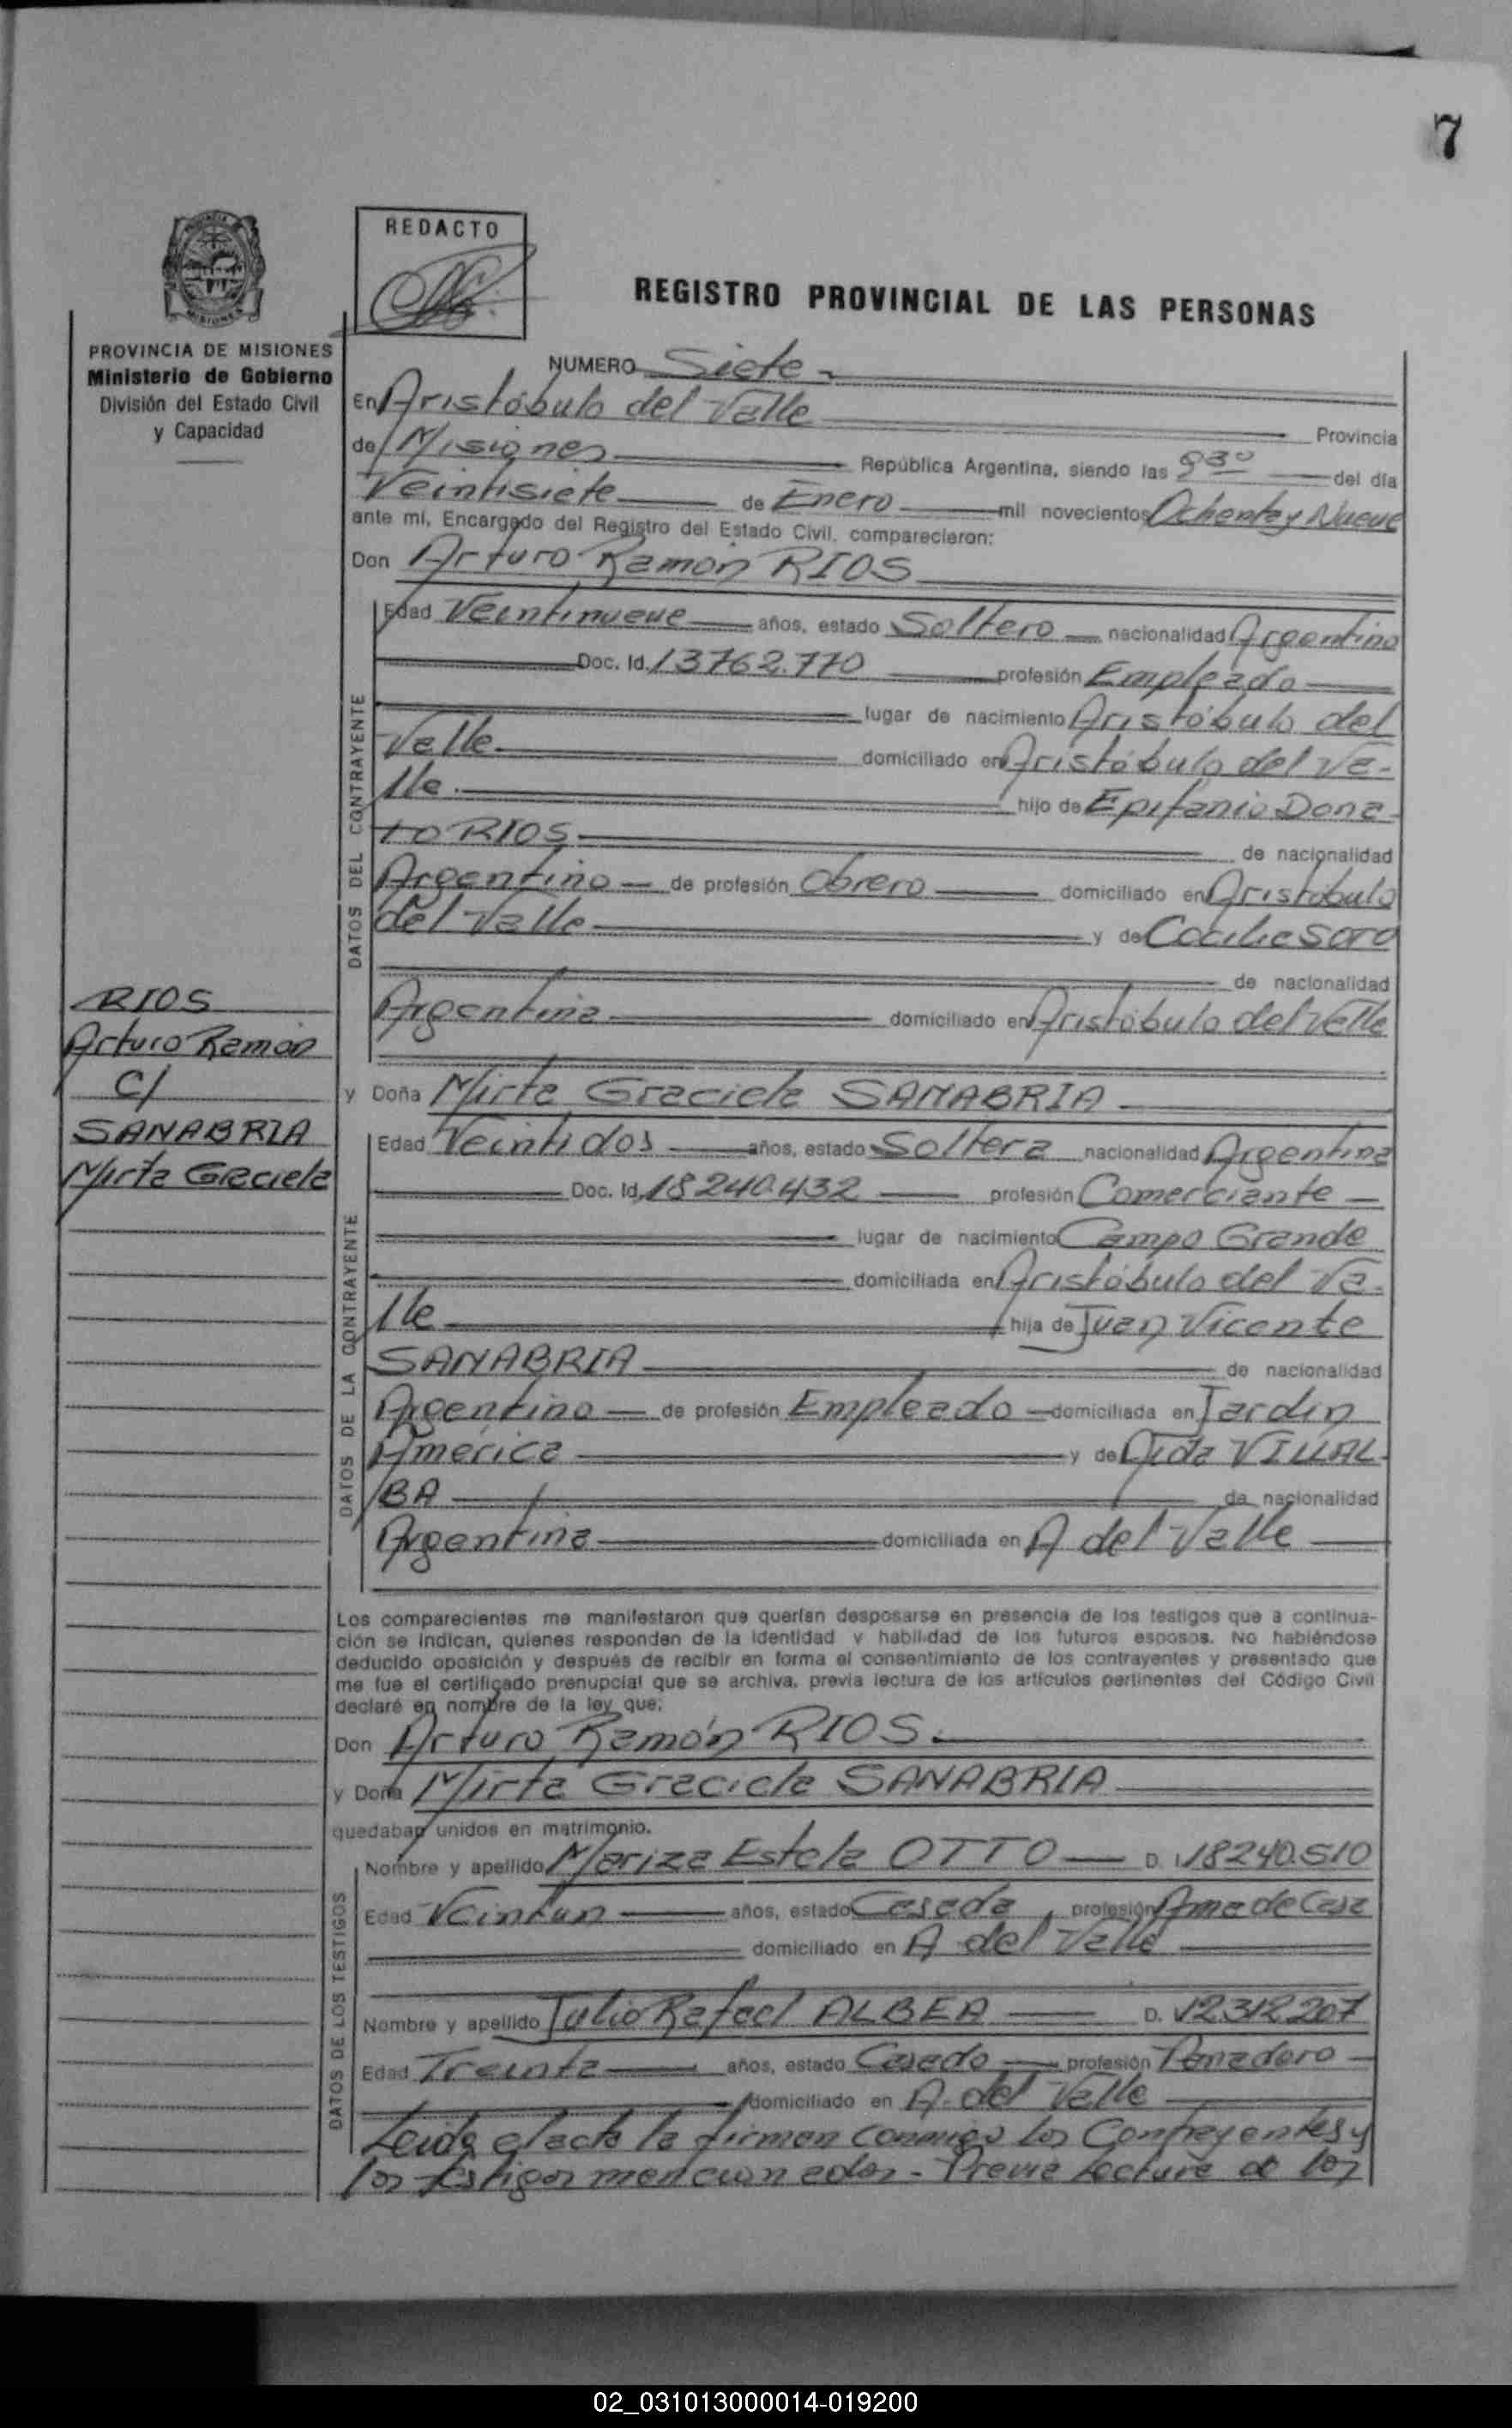 7
REDACTO
REGISTRO PROVINCIAL DE LAS PERSONAS
MISIONES
PROVINCIA DE MISIONES
Ministerio de Gobierno
División del Estado Civil
y Capacidad
RIOS
Arturo Ramón
C/
SANABRIA
Mirta Graciela
NUMERO Siete
En Aristóbulo del Valle Provincia
de Misiones República Argentina, siendo las 930 del día
Veintisiete de Enero mil novecientos Ochenta y Nueve
ante mí, Encargado del Registro del Estado Civil, comparecieron:
Don Arturo Ramón RIOS
DATOS DEL CONTRAYENTE
Edad Veintinueve años, estado Soltero nacionalidad Argentino
Doc. Id. 13762.770 profesión Empleado
lugar de nacimiento Aristóbulo del
Valle domiciliado en Aristóbulo del Va-
lle hijo de Epifanio Dona-
to RIOS de nacionalidad
Argentino de profesión Obrero domiciliado en Aristóbulo
del Valle y de SORO
de nacionalidad
Argentina domiciliado en Aristóbulo del Valle
y Doña Mirta Graciela SANABRIA
DATOS DE LA CONTRAYENTE
Edad Veintidos años, estado Soltera nacionalidad Argentina
Doc. Id. 18240.432 profesión Comerciante
lugar de nacimiento Campo Grande
domiciliada en Aristóbulo del Va-
lle hija de Juan Vicente
SANABRIA de nacionalidad
Argentino de profesión Empleado domiciliada en Jardin
América y de Aida VILLAL-
BA de nacionalidad
Argentina domiciliada en A del Valle
Los comparecientes me manifestaron que querían desposarse en presencia de los testigos que a continua-
ción se indican, quienes responden de la identidad y habilidad de los futuros esposos. No habiéndose
deducido oposición y después de recibir en forma el consentimiento de los contrayentes y presentado que
me fue el certificado prenupcial que se archiva, previa lectura de los artículos pertinentes del Código Civil
declaré en nombre de la ley que:
Don Arturo Ramón RIOS.
y Doña Mirta Graciela SANABRIA
quedaban unidos en matrimonio.
DATOS DE LOS TESTIGOS
Nombre y apellido Mariza Estela OTTO D. I. 18240.510
Edad Veintun años, estado Casada, profesión Ama de Casa
domiciliado en A del Valle
Nombre y apellido Julio Rafael ALBEA D. 12312207
Edad Treinta años, estado Casado profesión Panadero
domiciliado en A. del Valle
Leida el acta la firman conmigo los Contrayentes y
los testigos mencionados - Previa Lectura de los
02_031013000014-019200